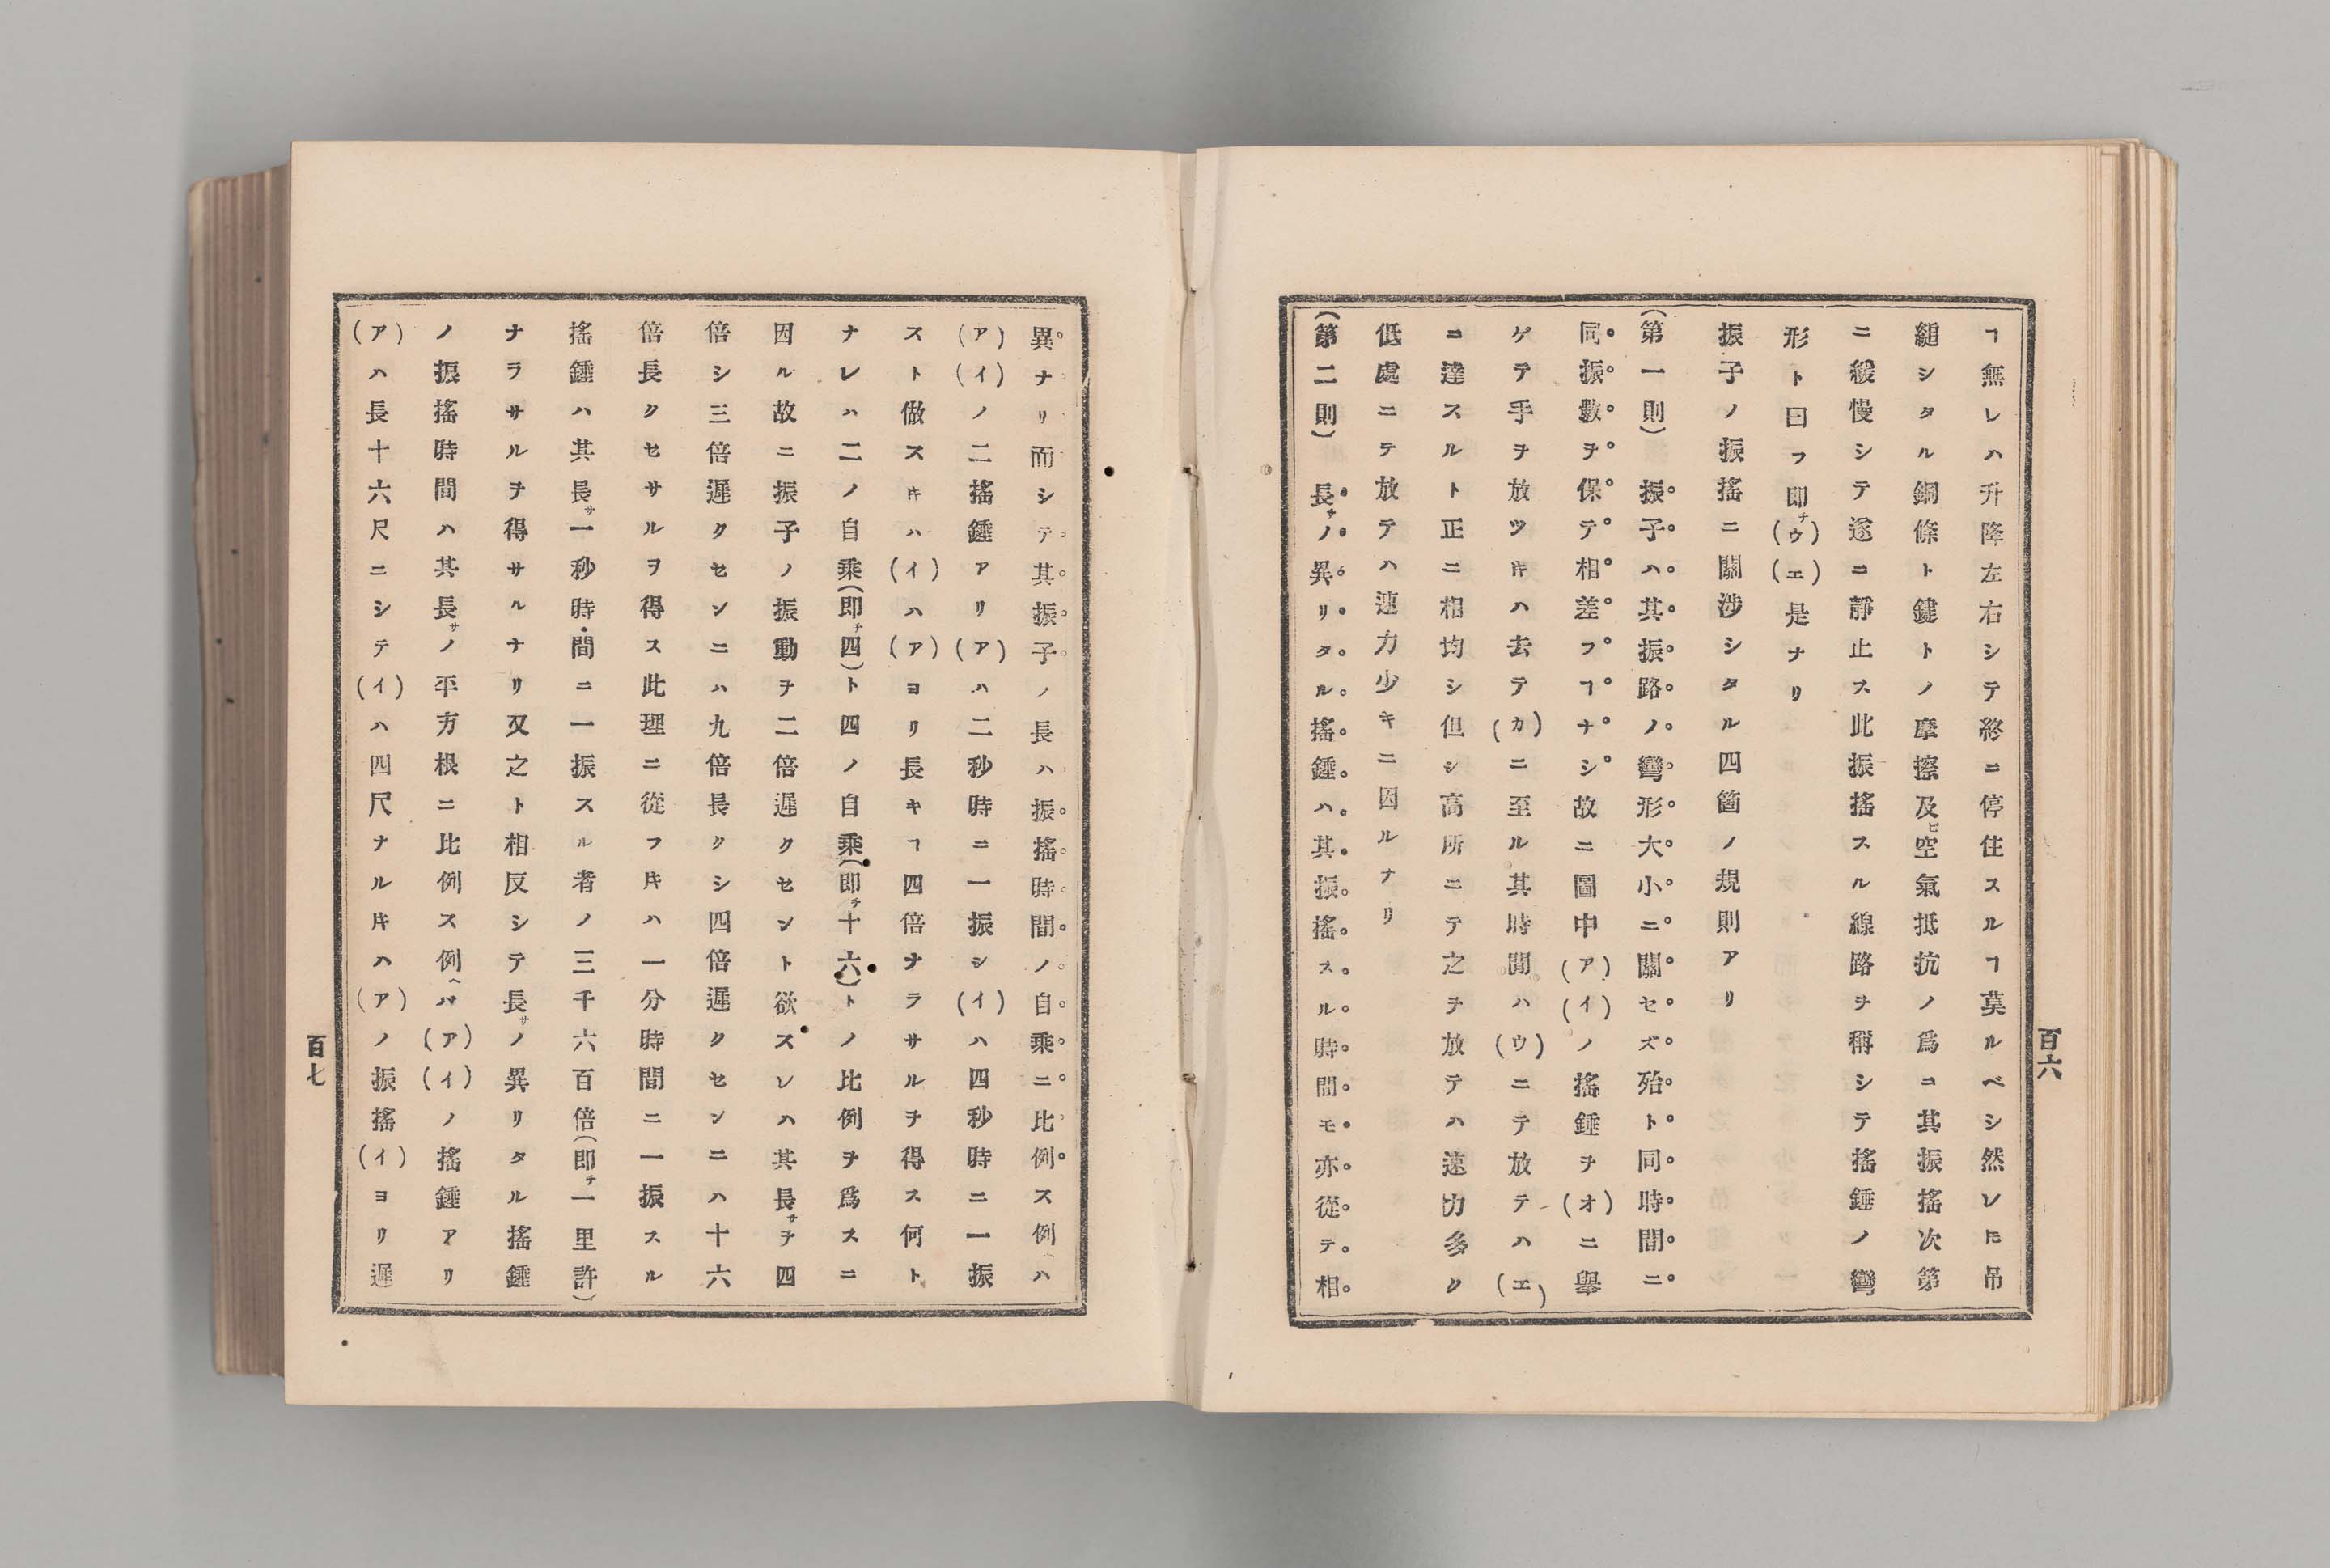 百六
ヿ無レハ升降左右シテ終ニ停住スルヿ莫ルベシ然レ𪜈吊
縋シタル銅條ト鍵トノ摩擦及ビ空氣抵抗ノ爲ニ其振搖次第
ニ緩慢シテ遂ニ靜止ス此振搖スル線路ヲ稱シテ搖錘ノ彎
形ト曰フ即チ(ゥ)(エ)是ナリ
振子ノ振搖ニ關渉シタル四箇ノ規則アリ
(第一則) 振子ハ其振路ノ彎形大小ニ關セズ殆ト同時間ニ
同振數ヲ保テ相差フヿナシ故ニ圖中(ア)(イ)ノ搖錘ヲ(オ)ニ擧
ゲテ手ヲ放ツ𪜈ハ去テ(カ)ニ至ル其時間ハ(ウ)ニテ放テハ(エ)
ニ達スルト正ニ相均シ但シ高所ニテ之ヲ放テハ速力多ク
低處ニテ放テハ速力少キニ因ルナリ
(第二則) 長サノ異リタル搖錘ハ其振搖スル時間モ亦從テ相
異ナリ而シテ其振子ノ長ハ振搖時間ノ自乘ニ比例ス例ハ
(ア)(イ)ノ二搖錘アリ(ア)ハ二秒時ニ一振シ(イ)ハ四秒時ニ一振
スト做スキハ(イ)ハ(ア)ヨリ長キヿ四倍ナラサルヲ得ス何ト
ナレハ二ノ自乘(即チ四)ト四ノ自乘(即チ十六)トノ比例ヲ爲スニ
因ル故ニ振子ノ振動ヲ二倍遲クセント欲スレハ其長サヲ四
倍シ三倍遲クセンニハ九倍長クシ四倍遲クセンニハ十六
倍長クセサルヲ得ス此理ニ從フ𪜈ハ一分時間ニ一振スル
搖錘ハ其長サ一秒時間ニ一振スル者ノ三千六百倍(即チ一里許)
ナラサルヲ得サルナリ又之ト相反シテ長サノ異リタル搖錘
ノ振搖時間ハ其長サノ平方根ニ比例ス例ヘバ(ア)(イ)ノ搖錘アリ
(ア)ハ長十六尺ニシテ(イ)ハ四尺ナル𪜈ハ(ア)ノ振搖(イ)ヨリ遲
百七